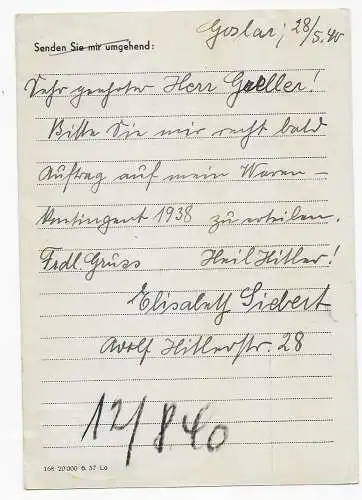 Goslar, 28/5.40
Senden Sie mir umgehend:
Sehr geehrter Herr Goeller!
Bitte Sie mir recht bald
Auftrag auf mein Waren-
kontingent 1938 zu erteilen.
Frdl. Gruss Heil Hitler!
Elisabeth Siebert
Adolf Hitlerstr. 28
12/8.40
168 20 000 6. 37 Lo